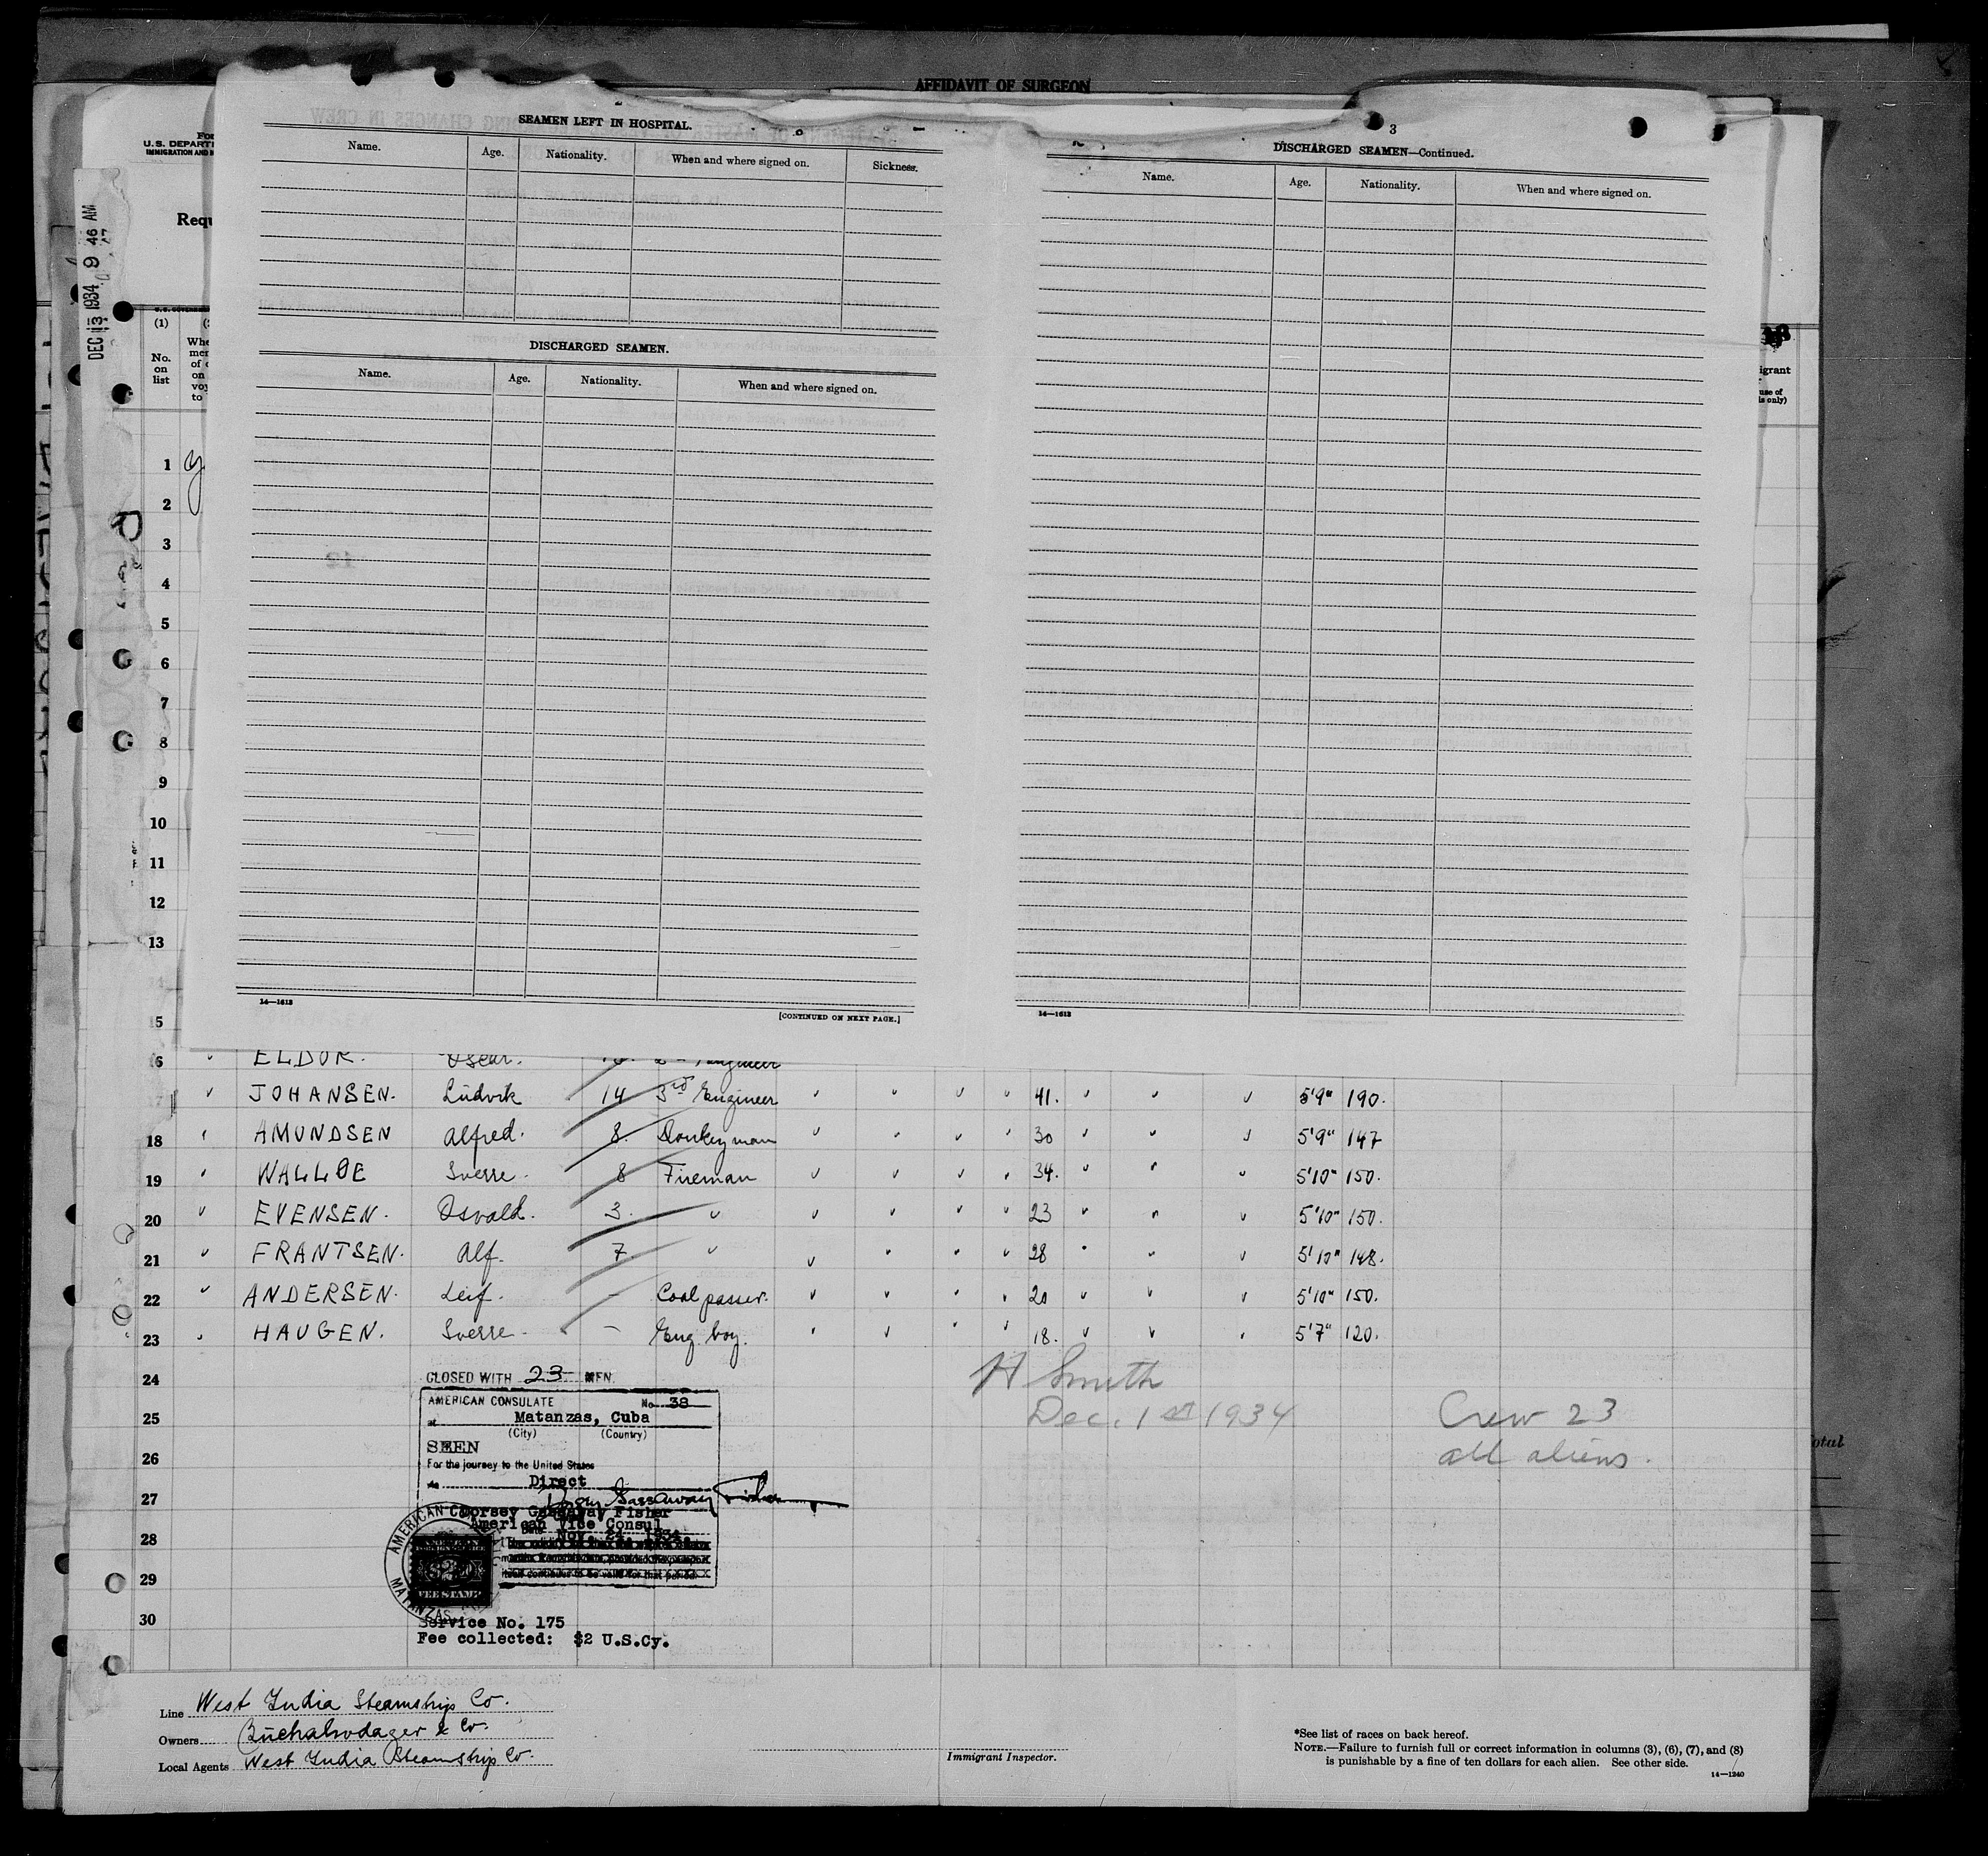 AFFIDAVIT OF SURGEON
U.S. DEPARTM
IMMIGRATION AND N
Requ
DEC 13 1934 9 46 AM
SEAMEN LEFT IN HOSPITAL.
Name. Age. Nationality. When and where signed on. Sickness.
DISCHARGED SEAMEN.
Name. Age. Nationality. When and where signed on.
14—1613
[CONTINUED ON NEXT PAGE.]
3
DISCHARGED SEAMEN—Continued.
Name. Age. Nationality. When and where signed on.
14—1613
(1)
No.
on
list
igrant
use of
ls only)
1
2
3
4
5
6
7
8
9
10
11
12
13
5
6 ELDOR. Oscar. Engineer
JOHANSEN. Ludvik 14 3rd Engineer 41. 5'9" 190.
18 AMUNDSEN Alfred. 8. Donkeyman 30 5'9" 147
19 WALLØE Sverre. 8 Fireman 34. 5'10" 150.
20 EVENSEN. Osvald. 3. " 23 5'10" 150.
21 FRANTSEN. Alf. 7. " 28 5'10" 148.
22 ANDERSEN. Leif. - Coal passer. 20 5'10" 150.
23 HAUGEN. Sverre. - Eng. boy. 18. 5'7" 120.
24
25
26
27
28
29
30
CLOSED WITH 23 MEN.
AMERICAN CONSULATE No. 38
at Matanzas, Cuba
(City) (Country)
SEEN
For the journey to the United States
Direct
Dorsey Gassaway Fisher
Dorsey Gassaway Fisher
American Vice Consul
Date Nov. 24, 1934.
AMERICAN
MATANZAS
$2
FEE STAMP
Service No. 175
Fee collected: $2 U.S.Cy.
H Smith
Dec. 1st 1934
Crew 23
all aliens.
otal
Line West India Steamship Co.
Owners
Local Agents West India Steamship Co.
Immigrant Inspector.
*See list of races on back hereof.
NOTE.—Failure to furnish full or correct information in columns (3), (6), (7), and (8)
is punishable by a fine of ten dollars for each alien. See other side.
14—1240